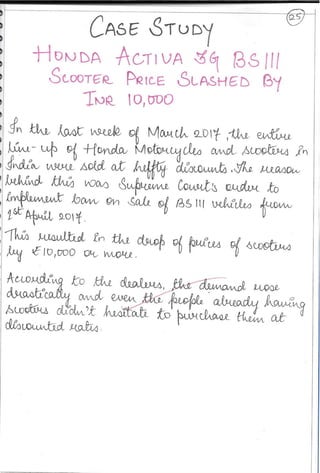 25
CASE STUDY
HONDA ACTIVA 3G BS III
SCOOTER PRICE SLASHED BY
INR 10,000
In the last week of March 2017, the entire
line-up of Honda Motorcycles and scooters in
India were sold at heffty discounts. The reason
behind this was Supreme Court's order to
implement ban on sale of BS III vehicles from
1st April 2017.
This resulted in the drop of prices of scooters
by ₹10,000 or more.
According to the dealers, the demand rose
drastically and even the people already having
scooters didn't hesitate to purchase them at
discounted rates.